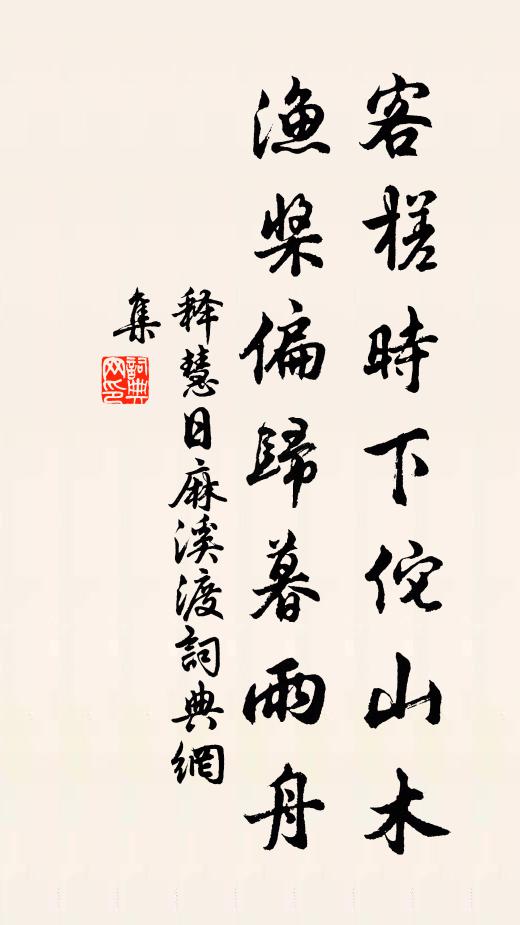 客槎時下佗山木
漁槳偏歸暮雨舟
释慧日麻溪渡詞典網
集
詞典网印